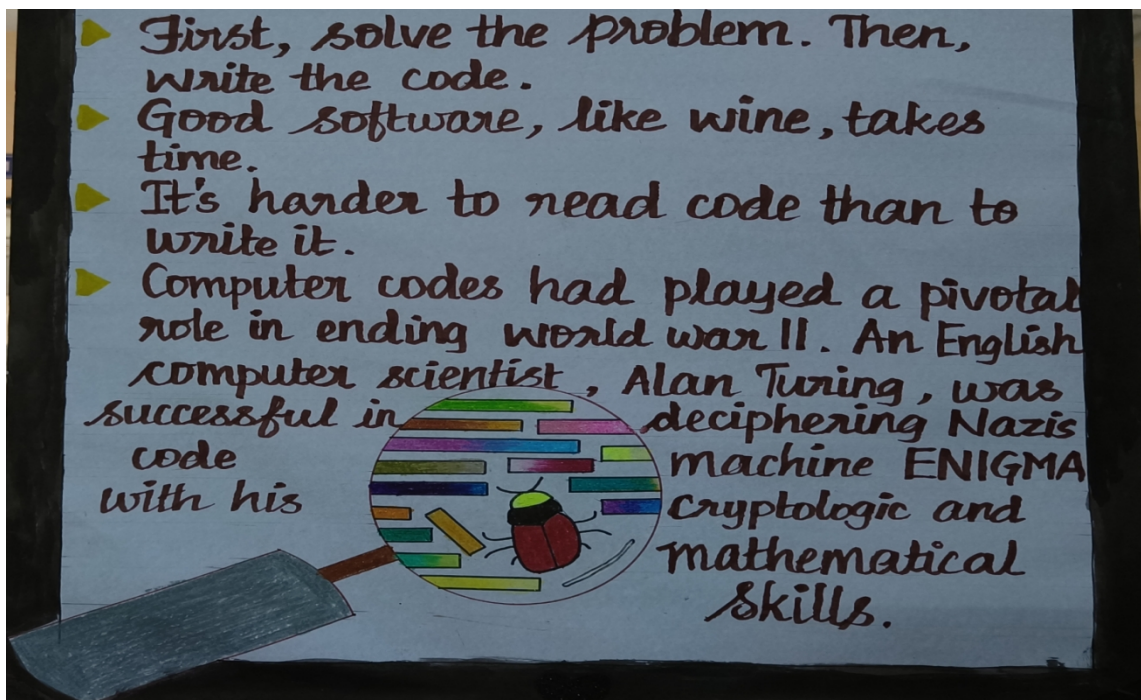 First, solve the problem. Then,
write the code.
Good software, like wine, takes
time.
It's harder to read code than to
write it.
Computer codes had played a pivotal
role in ending world war II. An English
computer scientist, Alan Turing, was
successful in deciphering Nazis
code machine ENIGMA
with his cryptologic and
mathematical
skills.